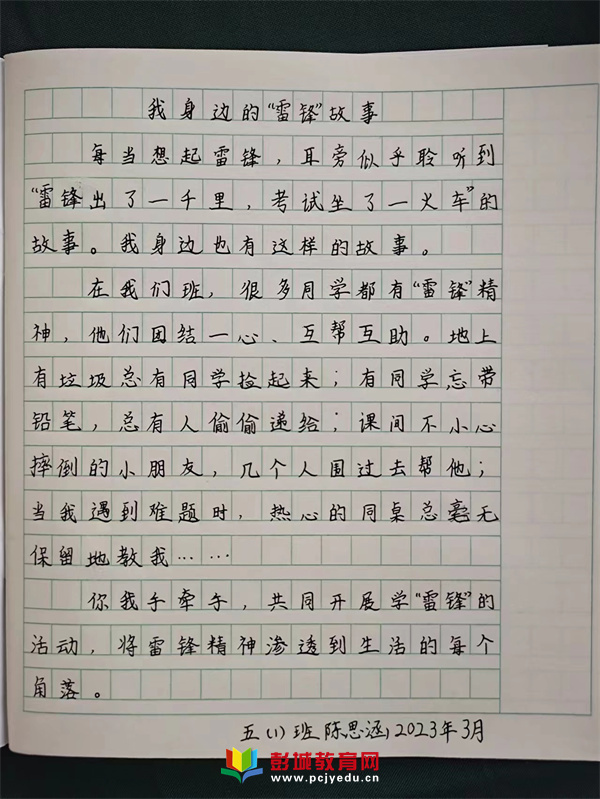 我身边的“雷锋”故事
每当想起雷锋，耳旁似乎聆听到
“雷锋出了一千里，考试坐了一火车”的
故事。我身边也有这样的故事。
在我们班，很多同学都有“雷锋”精
神，他们团结一心、互帮互助。地上
有垃圾总有同学捡起来；有同学忘带
铅笔，总有人偷偷递给；课间不小心
摔倒的小朋友，几个人围过去帮他；
当我遇到难题时，热心的同桌总毫无
保留地教我……
你我手牵手，共同开展学“雷锋”的
活动，将雷锋精神渗透到生活的每个
角落。
五（1）班 陈思涵，2023年3月
彭城教育网
www.pcjyedu.cn